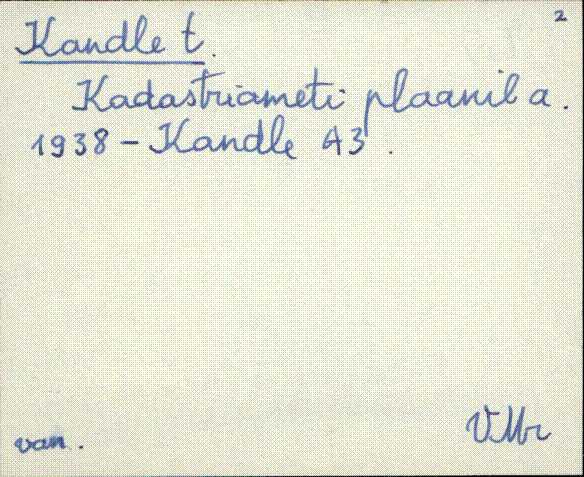 2
Kandle t.
Kadastriameti plaanil a.
1938 – Kandle A3.
van.
VMr